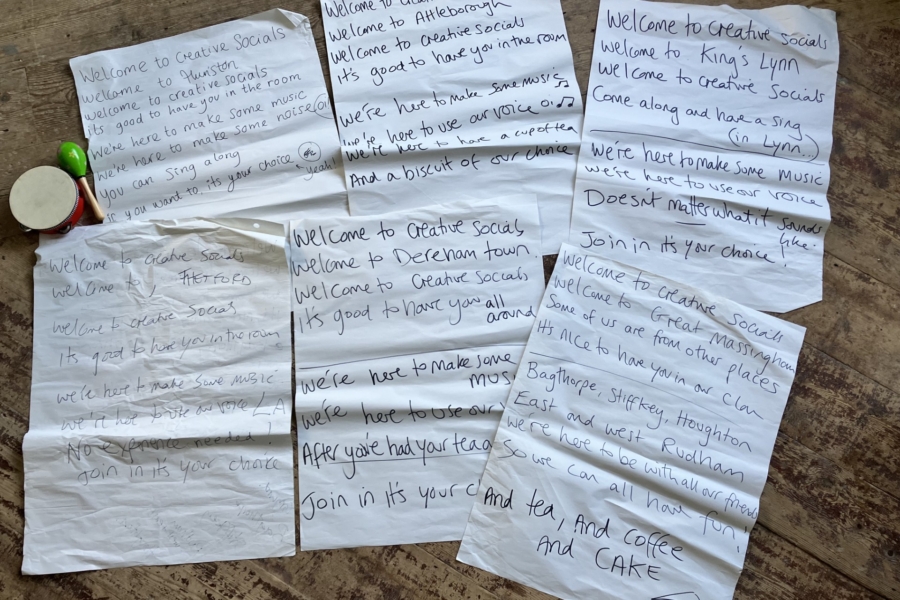 Welcome to Creative Socials
Welcome to Hunston
welcome to creative socials
its good to have you in the room
We're here to make some music
We're here to make some noise
You can sing along
you want to, it's your choice
yeah!
Welcome to
Welcome to Attleborough
welcome to Creative Socials
it's good to have you in the room
We're here to make some music
We're here to use our voice
We're here to have a cup of tea
And a biscuit of our choice
Welcome to Creative Socials
Welcome to King's Lynn
Welcome to Creative Socials
Come along and have a sing
(in Lynn.)
We're here to make some music
we're here to use our voice
Doesn't matter what it sounds
like.
Join in it's your choice!
Welcome to Creative Socials
Welcome to, THETFORD
welcome to creative Socials
it's good to have you in the room
we're here to make some music
we're here to use our voice LA
No experience needed!
join in it's your choice
Welcome to Creative Socials
Welcome to Dereham town.
Welcome to Creative Socials
it's good to have you all
around
We're here to make some
mus
We're here to use our
After you've had your tea
Join in it's your c
Welcome to creative Socials
Welcome to Great Massingham
Some of us are from other places
It's nice to have you in our clan
Bagthorpe, Stiffkey, Houghton
East and West Rudham
We're here to be with all our friends
So we can all have fun!
And tea, And coffee
And CAKE